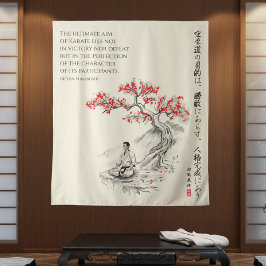 THE ULTIMATE AIM
OF KARATE LIES NOT
IN VICTORY NOR DEFEAT,
BUT IN THE PERFECTION
OF THE CHARACTER
OF ITS PARTICIPANTS.
GICHIN FUNAKOSHI
空手道の目的は、勝敗にあらず、人格完成にあり
船越義珍